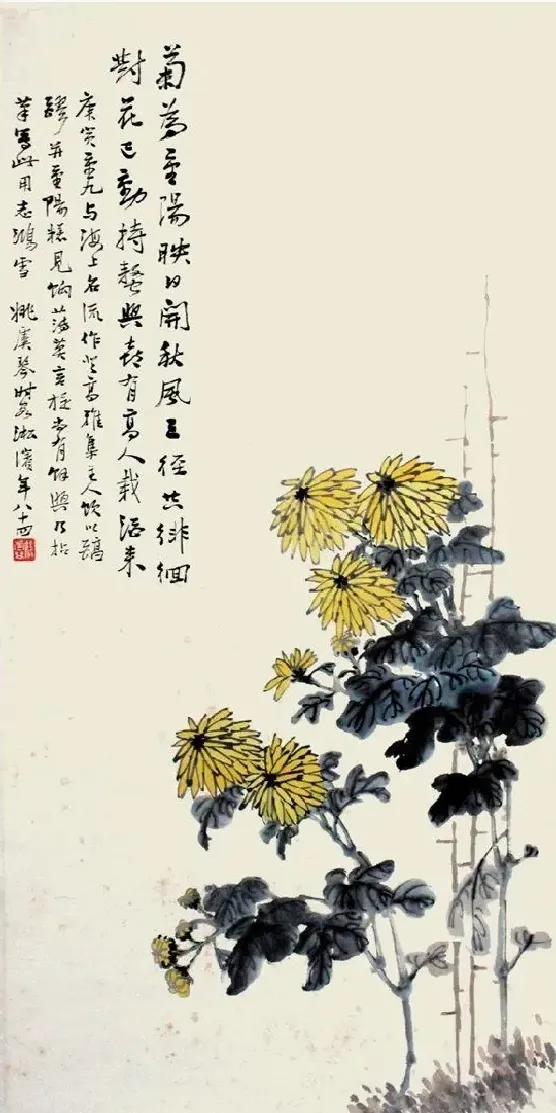 菊為重陽映日開秋風三徑共徘徊
對花已動持螯興喜有高人載酒來
庚寅重九与海上名流作登高雅集主人飲以醇
醪并重陽糕見餉薄莫言旋尚有餘興乃拈
筆寫此用志鴻雪 姚虞琴時客淞濱年八十四